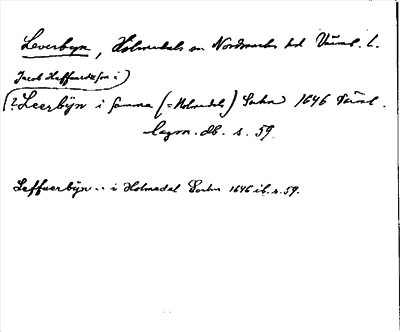 Leverbyn, Holmedals sn Nordmarks hd Värml. l.
Jacob Haffuardsson i)
?Leerbÿn i samma (= Holmedals) Sochn 1646 Värml.
lagm. db. s. 59.
Leffuerbÿn .. i Holmedal Sochn 1646 ib. s. 59.